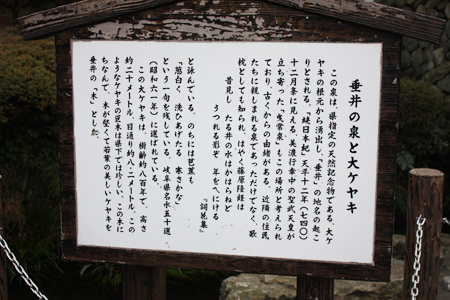 垂井の泉と大ケヤキ
この泉は、県指定の天然記念物である、大ケ
ヤキの根元から湧出し、「垂井」の地名の起こ
りとされる。「続日本紀」天平十二年(七四〇)
十二月条に見える、美濃行幸中の聖武天皇が
立ち寄った「曳常泉」もこの場所と考えられ
ており、古くからの由緒のある、近隣の住民
たちに親しまれる泉であっただけでなく、歌
枕としても知られ、はやく藤原隆経は
昔見し たる井の水はかはらねど
うつれる影ぞ 年をへにける
『詞花集』
と詠んでいる。のちには芭蕉も
「葱白く 洗ひあげたる 寒さかな」
という一句を残している。 岐阜県名水五十選
(昭和六一年)に選ばれている。
この大ケヤキは、樹齢約八百年で、高さ
約二十メートル、目通り約八・二メートル。この
ようなケヤキの巨木は県下では珍しい。この木に
ちなんで、木が堅くて若葉の美しいケヤキを
垂井の「木」とした。